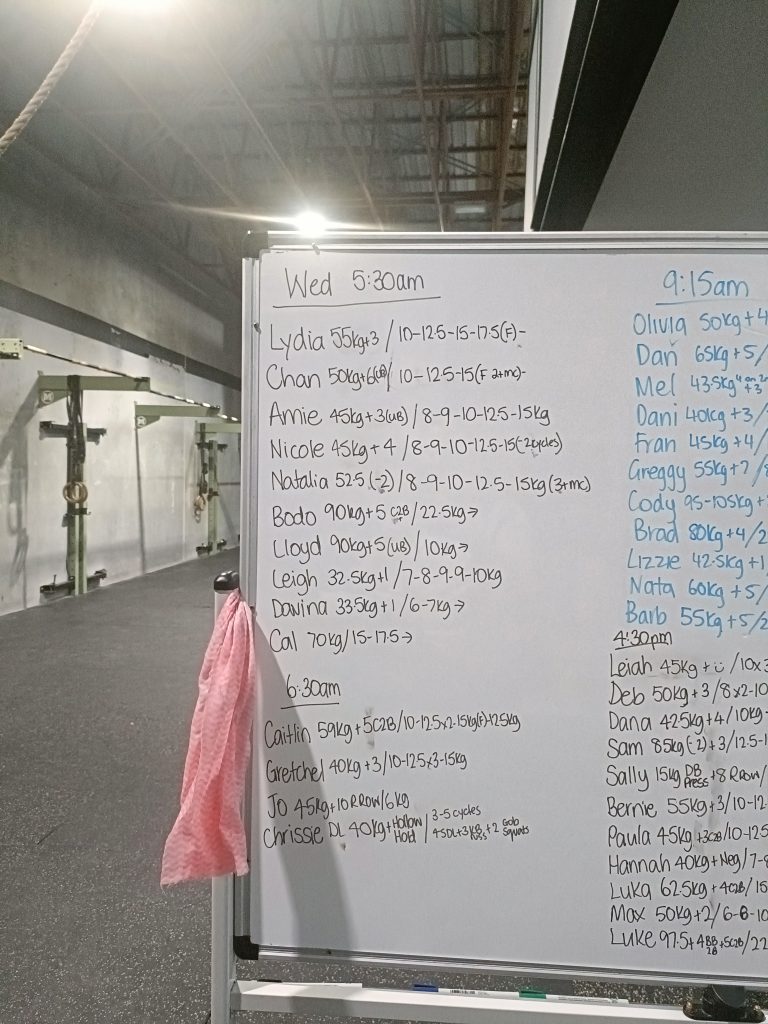 Wed 5:30am
Lydia 55kg+3 / 10-12.5-15-17.5(F)-
Chan 50kg+6(UB)/ 10-12.5-15(F 2+mc)-
Amie 45kg+3(UB)/8-9-10-12.5-15kg
Nicole 45kg+4 /8-9-10-12.5-15(-2cycles)
Natalia 52.5(-2)/8-9-10-12.5-15kg(3+mc)
Bodo 90kg+5 C2B/22.5kg→
Lloyd 90kg+5(UB)/10kg→
Leigh 32.5kg+1/7-8-9-9-10kg
Davina 33.5kg+1/6-7kg→
Cal 70kg/15-17.5→
6:30am
Caitlin 59kg+5C2B/10-12.5x2-15kg(F)-12.5kg
Gretchel 40kg+3/10-12.5x3-15kg
Jo 45kg+10RROW/6kg
Chrissie DL 40kg+Hollow Hold / 3-5 cycles
4SDL+3KB Press+2 Gob Squats
9:15am
Olivia 50kg+4
Dan 65kg+5/
Mel 43.5kg
Dani 40kg+3/
Fran 45kg+4/
Greggy 55kg+2/8
Cody 95-105kg+
Brad 80kg+4/2
Lizzie 42.5kg+1
Nata 60kg+5/
Barb 55kg+5/2
4:30pm
Leiah 45kg+☺/10x3
Deb 50kg+3/8x2-10
Dana 42.5kg+4/10kg-
Sam 85kg(-2)+3/12.5-1
Sally 15kg DB Press+8 RROW/
Bernie 55kg+3/10-12
Paula 45kg+3C2B/10-12.5
Hannah 40kg+Neg/7-8
Luka 62.5kg+4C2B/15
Max 50kg+2/6-8-10
Luke 97.5+4BB 2B+5C2B/22